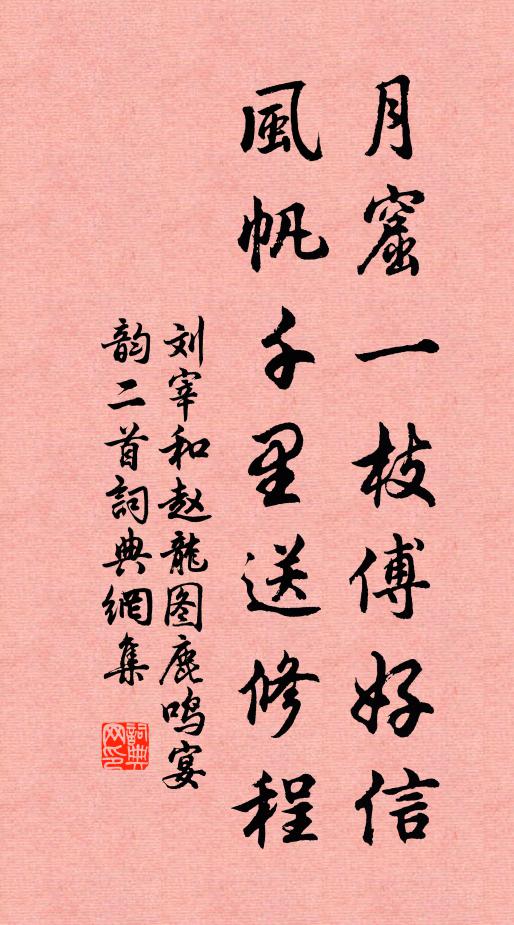 月窟一枝傅好信
風帆千里送修程
刘宰和赵龍图鹿鳴宴
韵二首詞典網集
詞典
网印